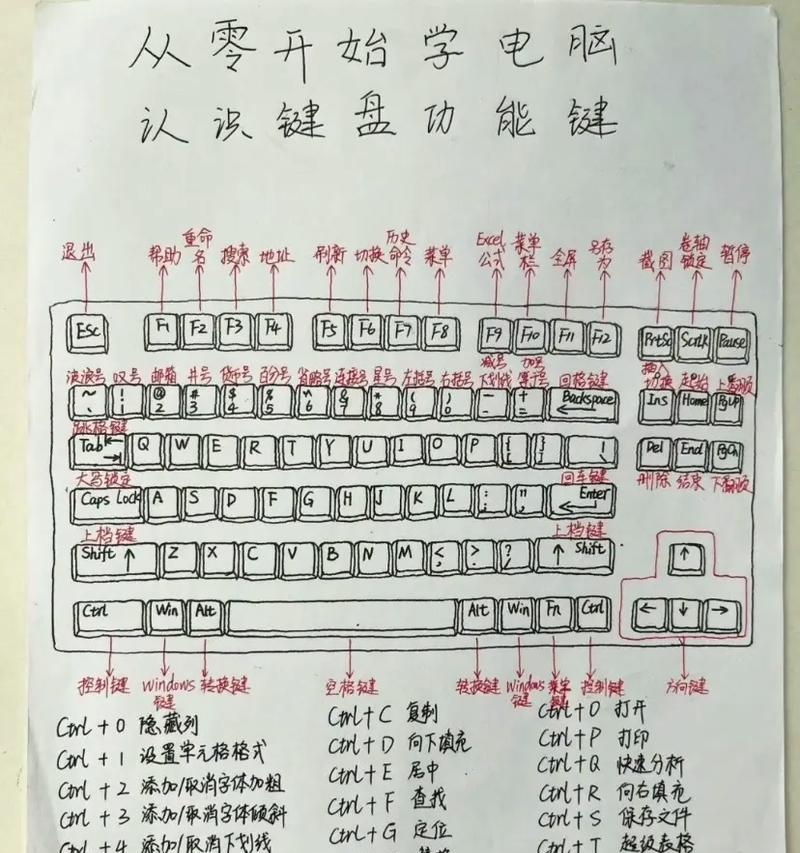 从零开始学电脑
认识键盘功能键
重命 历史 Excel 菜单 另存 卷轴
退出 帮助 名 搜索 地址 刷新 切换 命令 菜单 公式 栏 全屏 为 截图 锁定 暂停
Esc F1 F2 F3 F4 F5 F6 F7 F8 F9 F10 F11 F12 PrtSc ScrLK Pause
减号 加号 插入
波浪号 叹号 邮箱 井号 货币号 百分号 省略号 连接号 星号 左括号 右括号 下划线 等于号 回格键 切换 起始 上翻页
~ ! @ # $ % ^ & * ( ) - + Backspace Ins Home PgUp
` 1 2 3 4 5 6 7 8 9 0 - = ←
跳格键
Tab Q W E R T Y U I O P { } \ Del End PgDn
[ ]
大写锁定 回车键 删除 结束 下翻页
Caps Lock A S D F G H J K L : " Enter
; ' ←
上档键 上档键
Shift ↑ Z X C V B N M < > ? ↑ Shift ↑
, . /
Ctrl Win Alt Alt Win Fn Ctrl ← ↓ →
控制键 Windows 转换键 空格键 转换键 Windows 菜单 控制键 方向键
键 键 键
Ctrl + 0 隐藏列 Ctrl + C 复制 Ctrl + O 打开
Ctrl + 1 设置单元格格式 Ctrl + D 向下填充 Ctrl + P 打印
Ctrl + 2 添加/取消字体加粗 Ctrl + E 居中 Ctrl + Q 快速分析
Ctrl + 3 添加/取消字体倾斜 Ctrl + F 查找 Ctrl + R 向右填充
Ctrl + 4 添加/取消下划线 Ctrl + G 定位 Ctrl + S 保存文件
Ctrl + T 超级表格